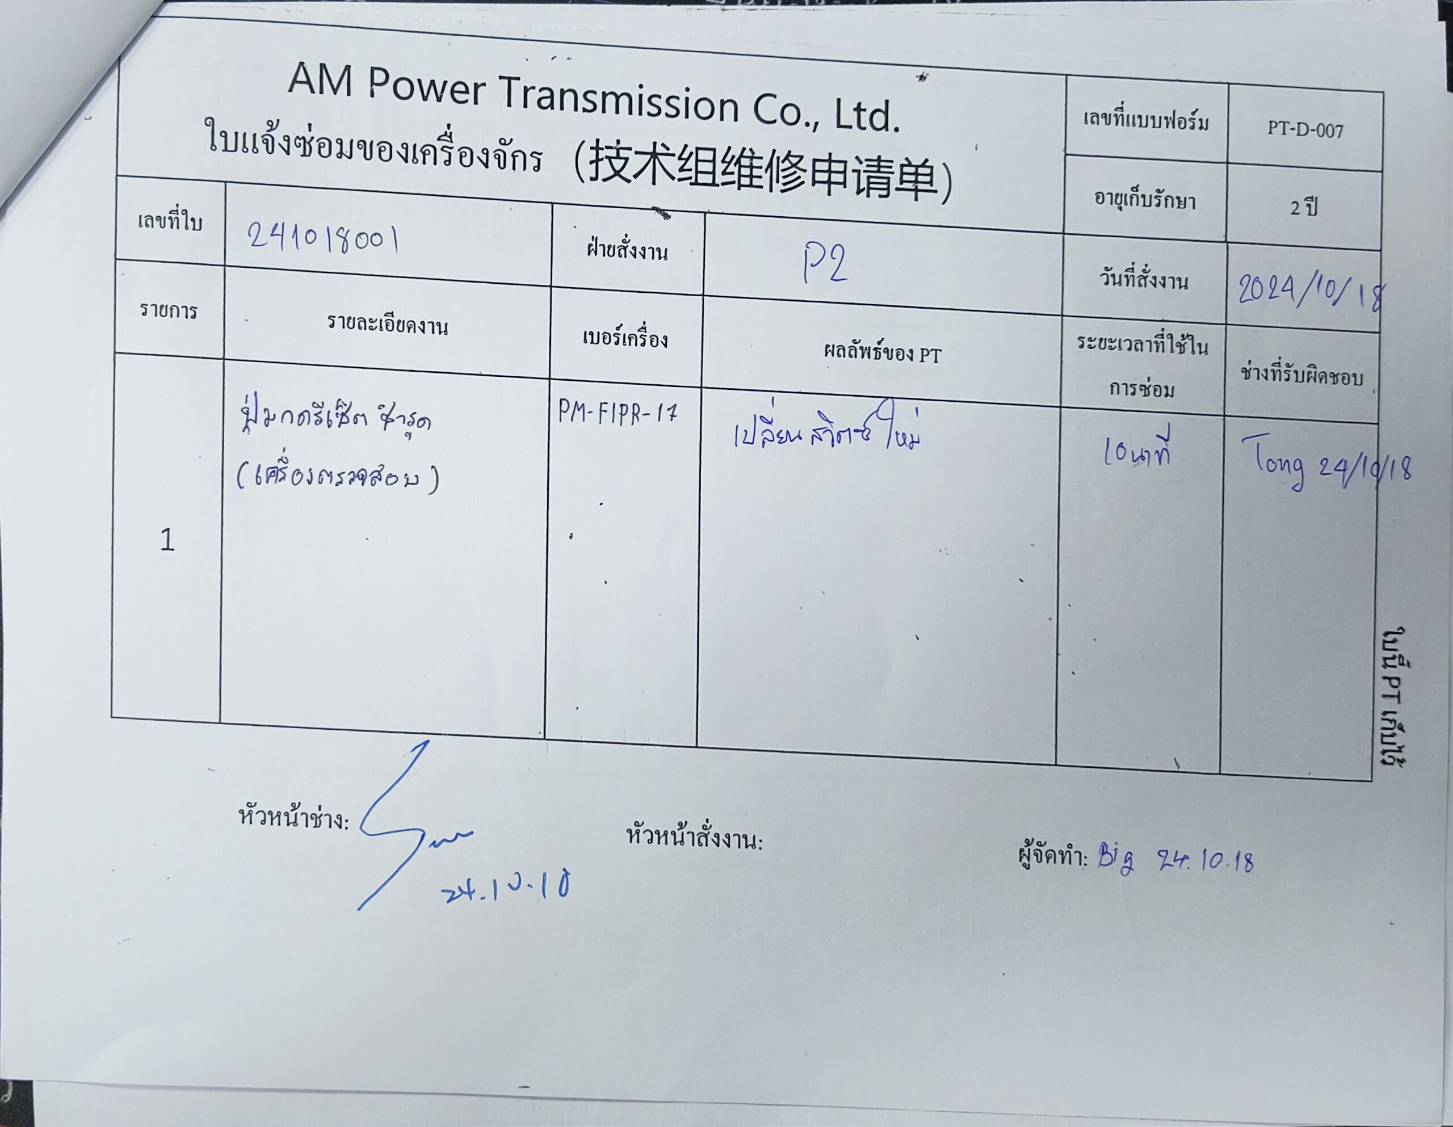 AM Power Transmission Co., Ltd.
ใบแจ้งซ่อมของเครื่องจักร (技术组维修申请单)
เลขที่แบบฟอร์ม PT-D-007
อายุเก็บรักษา 2 ปี
เลขที่ใบ 241018001 ฝ่ายสั่งงาน P2 วันที่สั่งงาน 2024/10/18
รายการ รายละเอียดงาน เบอร์เครื่อง ผลลัพธ์ของ PT ระยะเวลาที่ใช้ใน
การซ่อม ช่างที่รับผิดชอบ
1
ปุ่มกดรีเซ็ต ชำรุด
(เครื่องตรวจสอบ)
PM-FIPR-17
เปลี่ยนสวิตซ์ใหม่
10นาที
Tong 24/10/18
ใบนี้ PT เก็บไว้
หัวหน้าช่าง:
24.10.18
หัวหน้าสั่งงาน:
ผู้จัดทำ: Big 24.10.18